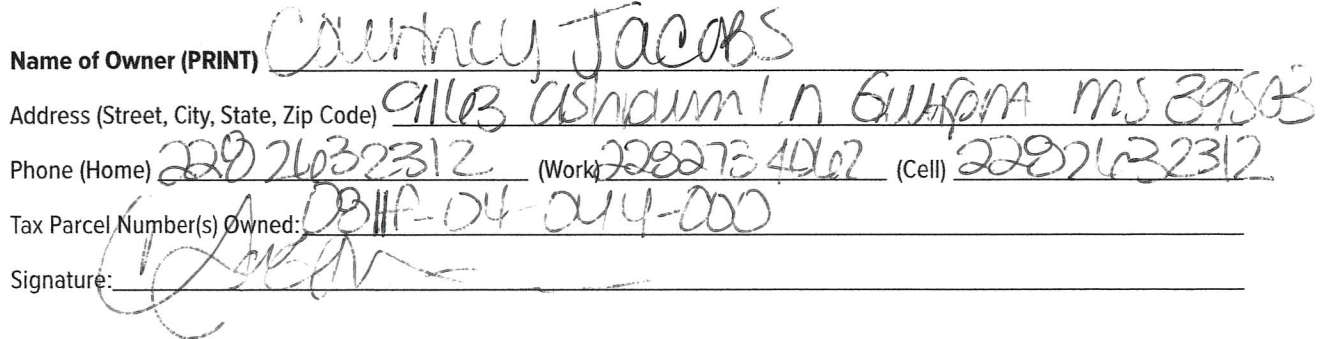 Name of Owner (PRINT) Courtney Jacobs
Address (Street, City, State, Zip Code) 9163 ashdum ln Gulfport MS 39503
Phone (Home) 2282632312 (Work) 2282734062 (Cell) 2282632312
Tax Parcel Number(s) Owned: 0811F-04-044-000
Signature: